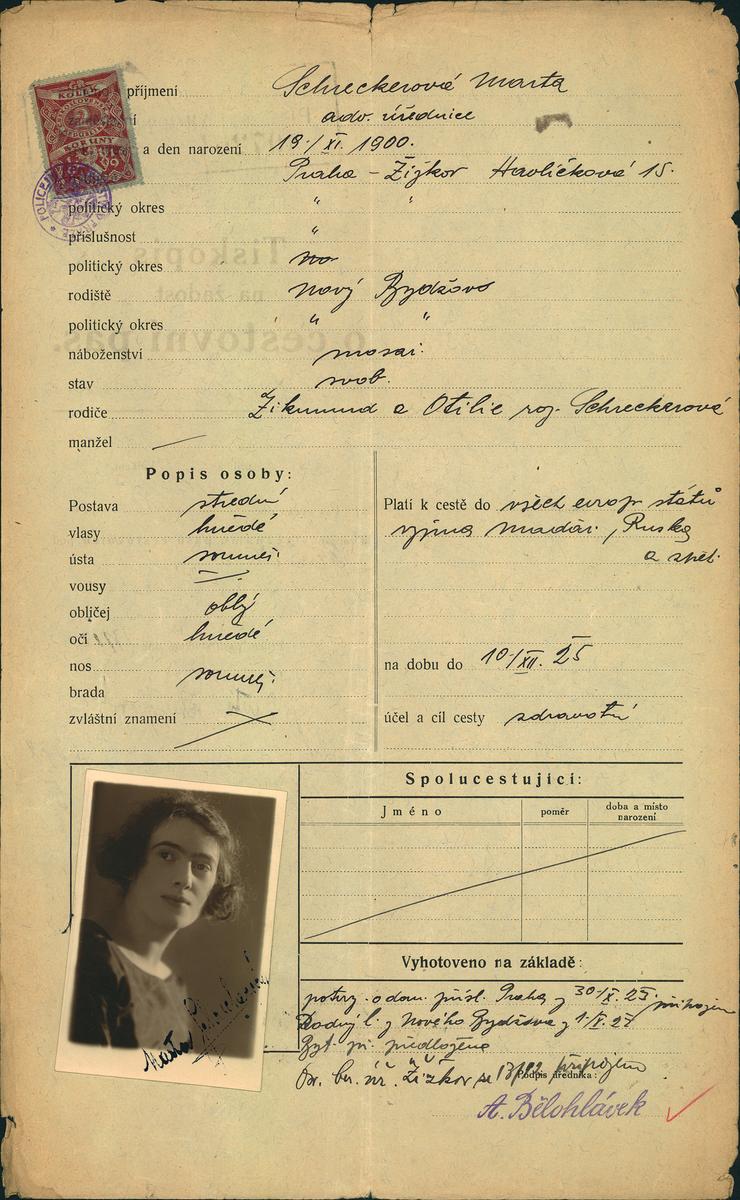 příjmení Schreckerová Marta
adv. úřednice
a den narození 19./XI. 1900.
Praha – Žižkov Havlíčková 15.
politický okres " "
příslušnost "
politický okres
rodiště Nový Bydžov
politický okres " "
náboženství mosai.
stav svob.
rodiče Zikmund a Otilie roz. Schreckerová
manžel —
Popis osoby:
Postava střední
vlasy hnědé
ústa souměr.
vousy
obličej oblý
oči hnědé
nos souměr.
brada
zvláštní znamení
Platí k cestě do všech evrop. států
vyjma Maďar., Ruska
a zpět.
na dobu do 10/XII. 25
účel a cíl cesty zdravotní
Spolucestující:
Jméno poměr doba a místo narození
Vyhotoveno na základě:
potvrz. o dom. přísl. Praha z 30/X. 25 připojem
Rodný l. z Nového Bydžova z
předložena
Žižkov
Podpis úředníka:
A. Bělohlávek
Marta Schreckerová
KORUNY